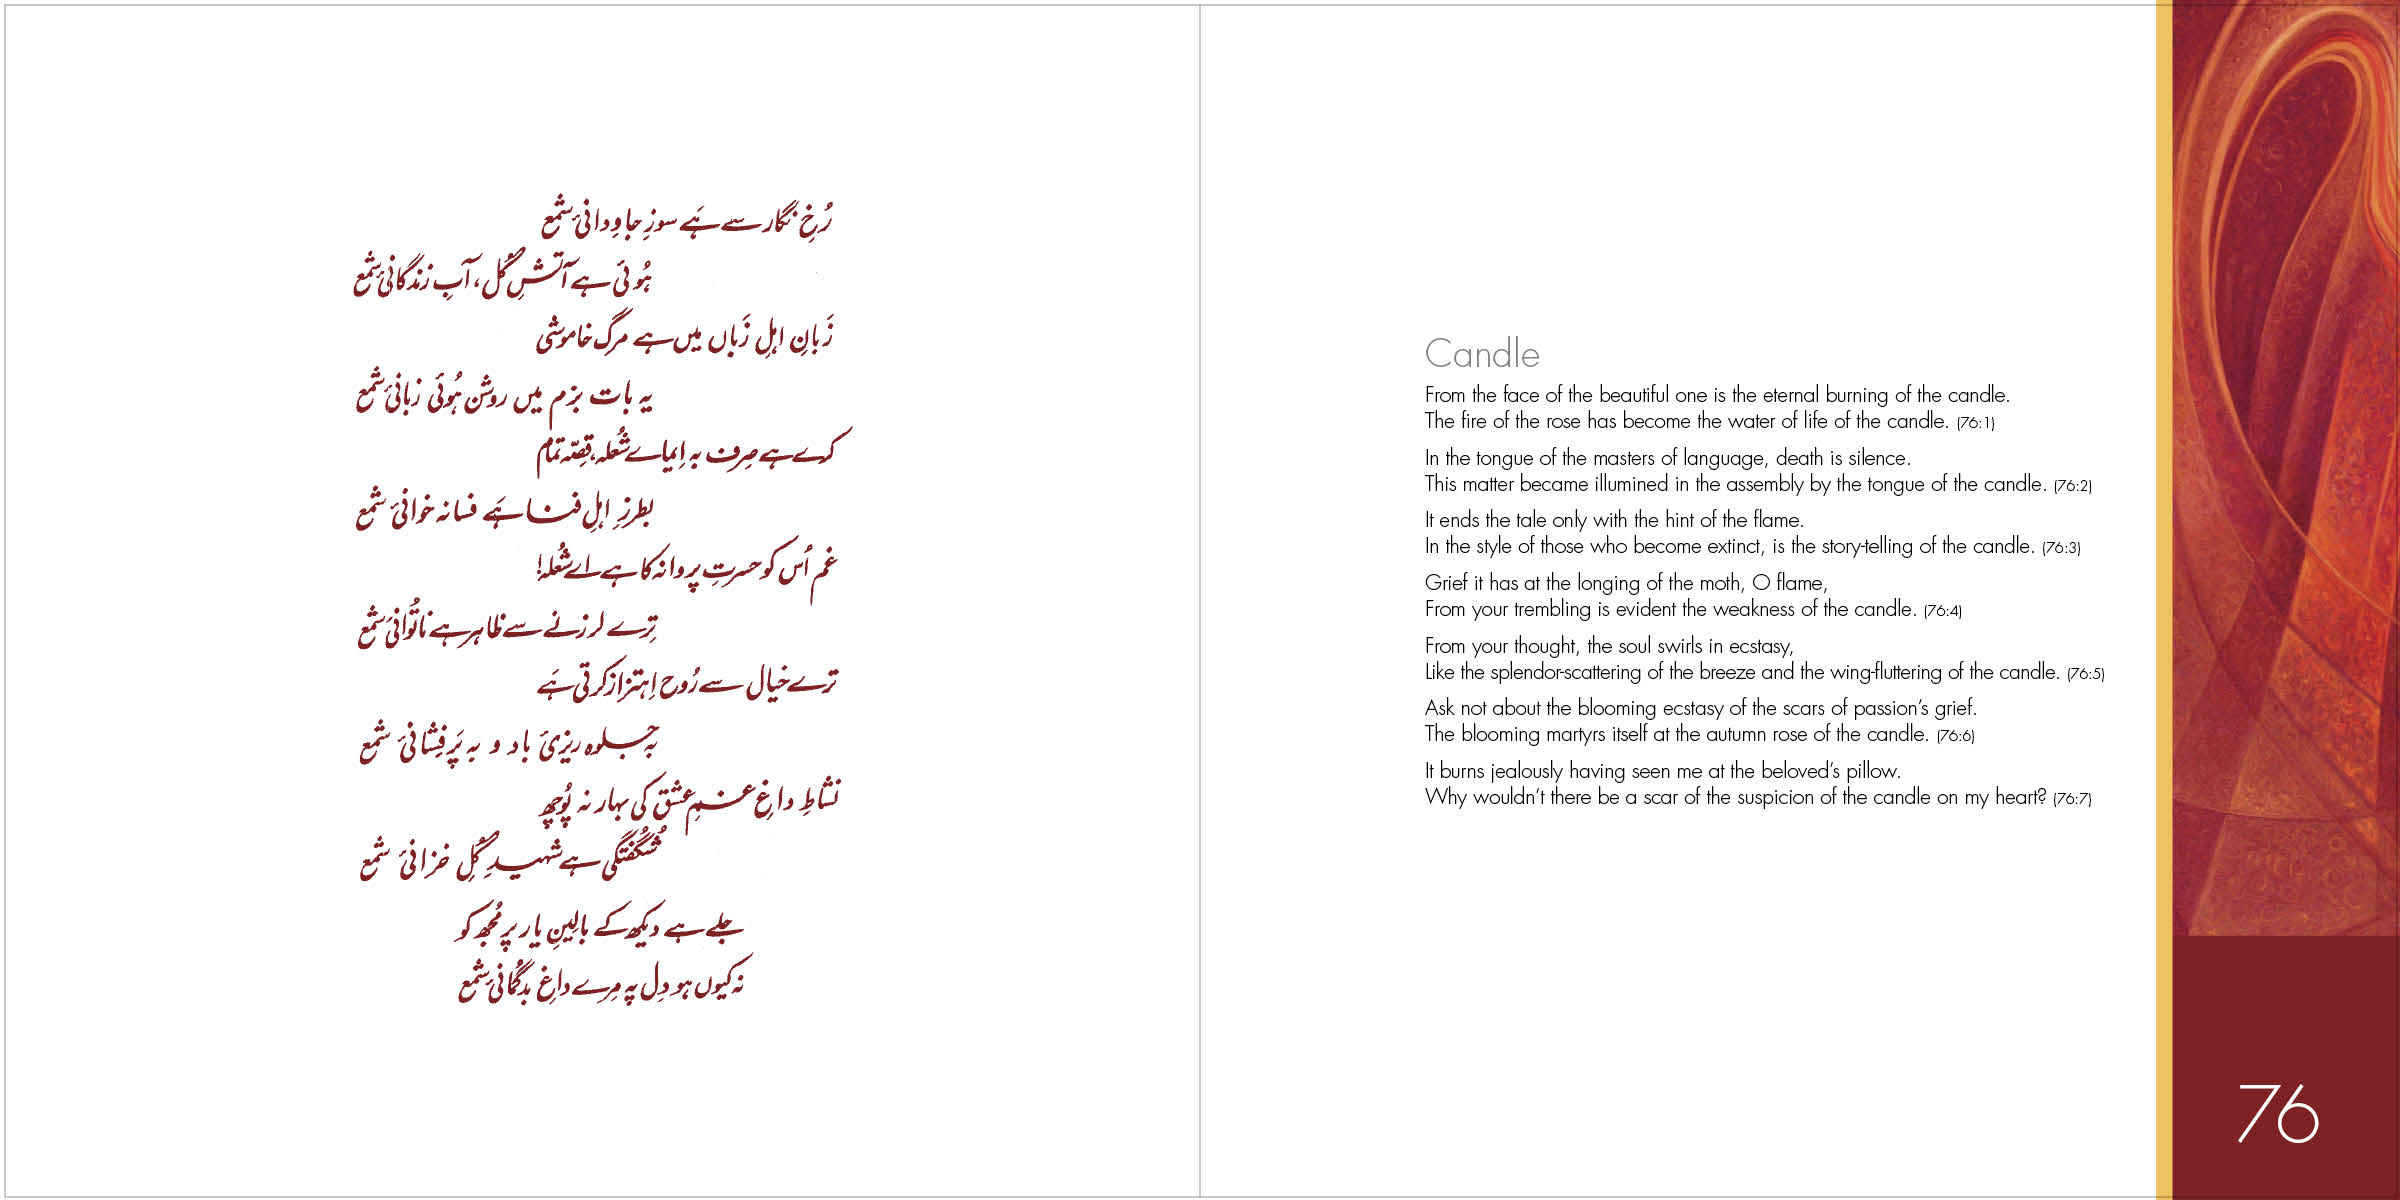 رُخِ نگار سے ہَے سوزِ جاوِدانیِٔ شمع
ہُوئی ہے آتشِ گُل، آبِ زندگانیِٔ شمع
زَبانِ اہلِ زَباں میں ہے مرگ خاموشی
یہ بات بزم میں روشن ہُوئی زبانیِٔ شمع
کرے ہے صِرف بہ اِیماے شُعلہ، قِصّہ تمام
بطرزِ اہلِ فنا ہَے فسانہ خوانیِٔ شمع
غم اُس کو حسرتِ پروانہ کا ہے اے شُعلہ!
تِرے لرزنے سے ظاہر ہے ناتُوانیِٔ شمع
ترے خیال سے رُوح اِہتزاز کرتی ہَے
بہ جلوہ ریزیِٔ باد و بہ پَرفِشانیِٔ شمع
نشاطِ داغِ غمِ عشق کی بہار نہ پُوچھ
شُگُفتگی ہے شہیدِ گُلِ خزانیِٔ شمع
جلے ہے دیکھ کے بالِینِ یار پر مُجھ کو
نہ کیوں ہو دِل پہ مِرے داغِ بدگُمانیِٔ شمع
Candle
From the face of the beautiful one is the eternal burning of the candle.
The fire of the rose has become the water of life of the candle. (76:1)
In the tongue of the masters of language, death is silence.
This matter became illumined in the assembly by the tongue of the candle. (76:2)
It ends the tale only with the hint of the flame.
In the style of those who become extinct, is the story-telling of the candle. (76:3)
Grief it has at the longing of the moth, O flame,
From your trembling is evident the weakness of the candle. (76:4)
From your thought, the soul swirls in ecstasy,
Like the splendor-scattering of the breeze and the wing-fluttering of the candle. (76:5)
Ask not about the blooming ecstasy of the scars of passion's grief.
The blooming martyrs itself at the autumn rose of the candle. (76:6)
It burns jealously having seen me at the beloved's pillow.
Why wouldn't there be a scar of the suspicion of the candle on my heart? (76:7)
76